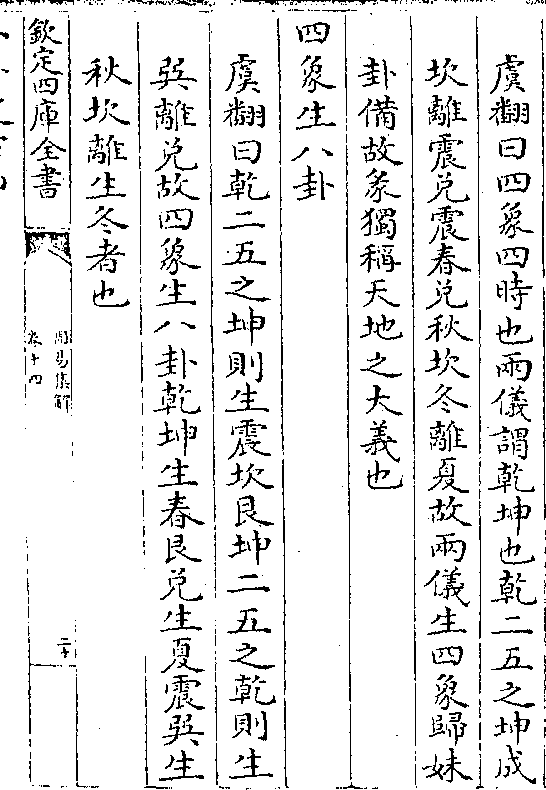 虞翻曰四象四時也兩儀謂乾坤也乾二五之坤成
坎離震兌震春兌秋坎冬離夏故兩儀生四象歸妹
卦備故彖獨稱天地之大義也
四象生八卦
虞翻曰乾二五之坤則生震坎艮坤二五之乾則生
巽離兌故四象生八卦乾坤生春艮兌生夏震巽生
秋坎離生冬者也
欽定四庫全書
周易集解
卷十四
二十